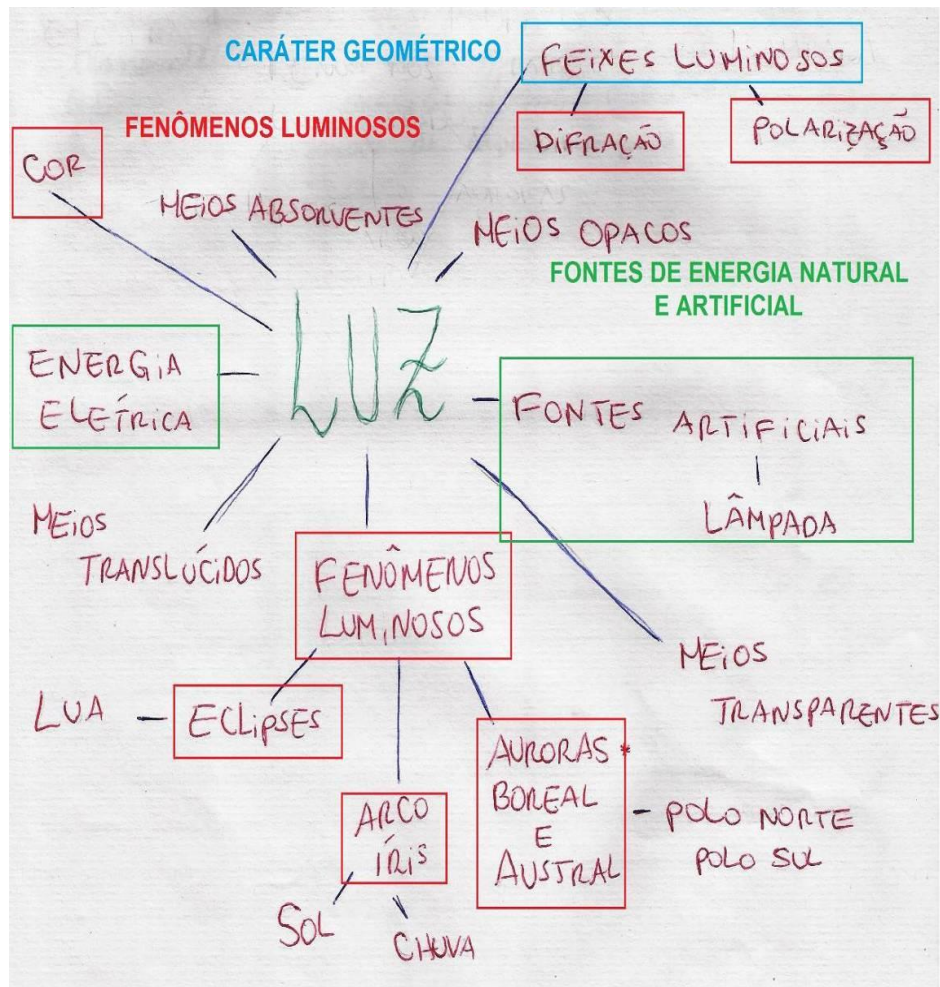 CARÁTER GEOMÉTRICO
FEIXES LUMINOSOS
FENÔMENOS LUMINOSOS
DIFRAÇÃO
POLARIZAÇÃO
COR
MEIOS ABSORVENTES
MEIOS OPACOS
FONTES DE ENERGIA NATURAL
E ARTIFICIAL
LUZ
ENERGIA
ELÉTRICA
FONTES ARTIFICIAIS
LÂMPADA
MEIOS
TRANSLÚCIDOS
FENÔMENOS
LUMINOSOS
MEIOS
TRANSPARENTES
LUA
ECLIPSES
AURORAS *
BOREAL
E
AUSTRAL
POLO NORTE
POLO SUL
ARCO
ÍRIS
SOL
CHUVA